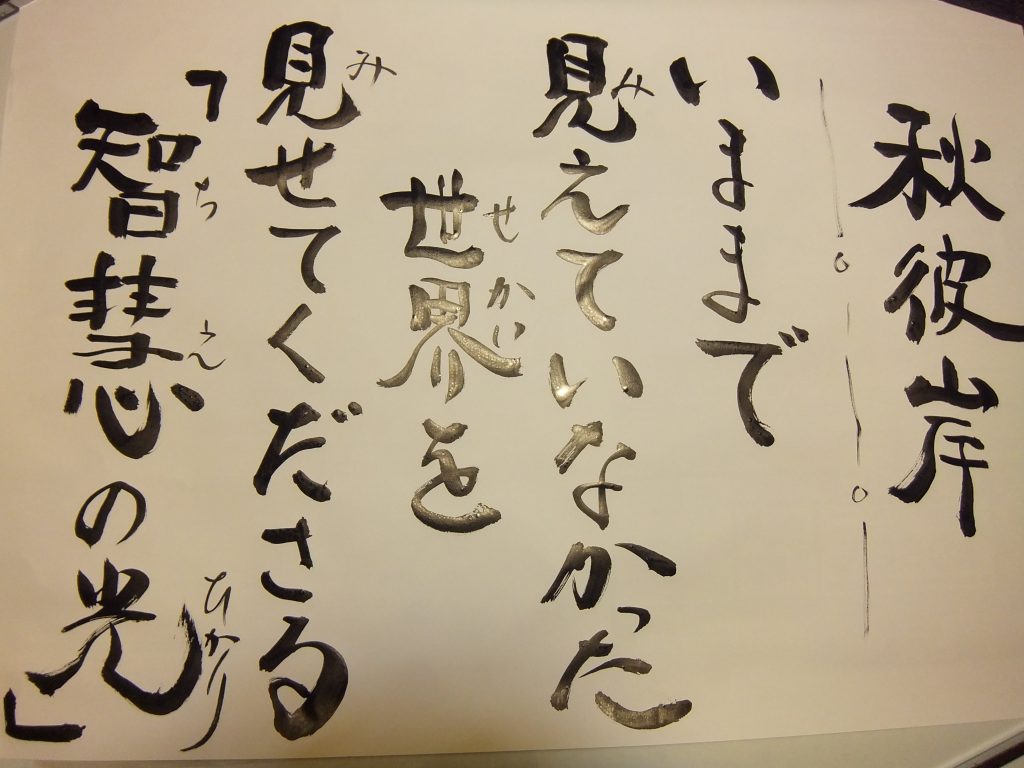 秋彼岸
いままで
見えていなかった
み
世界を
せかい
見せてくださる
み
「智慧の光」
ちえ ひかり